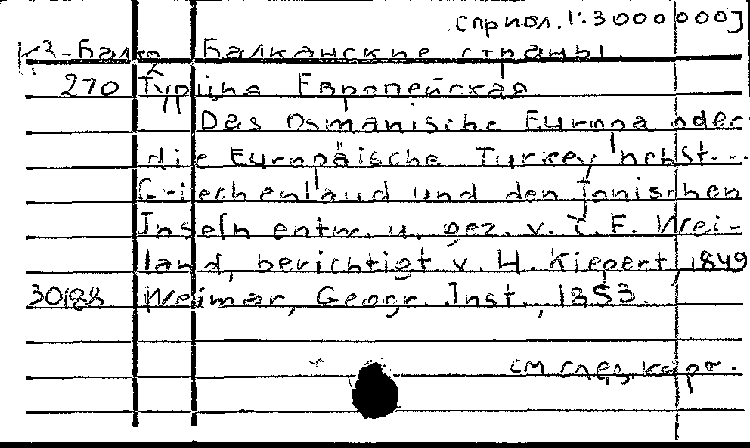 [прибл. 1:3000000]
К³-Балк Балканские страны
270 Турция Европейская
Das Osmanische Europa oder
die Europäische Turkey nebst...
Griechenland und den Jonischen
Inseln entw. u. gez. v. C. F. Wei-
land, berichtigt v. H. Kiepert, 1849
30188 Weimar, Geogr. Inst., 1853
см след. карт.